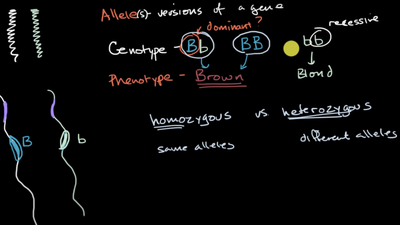 Allele(s)- versions of a gene
dominant?
recessive
Genotype - Bb BB bb
Phenotype - Brown Blond
homozygous vs. heterozygous
same alleles different alleles
B b